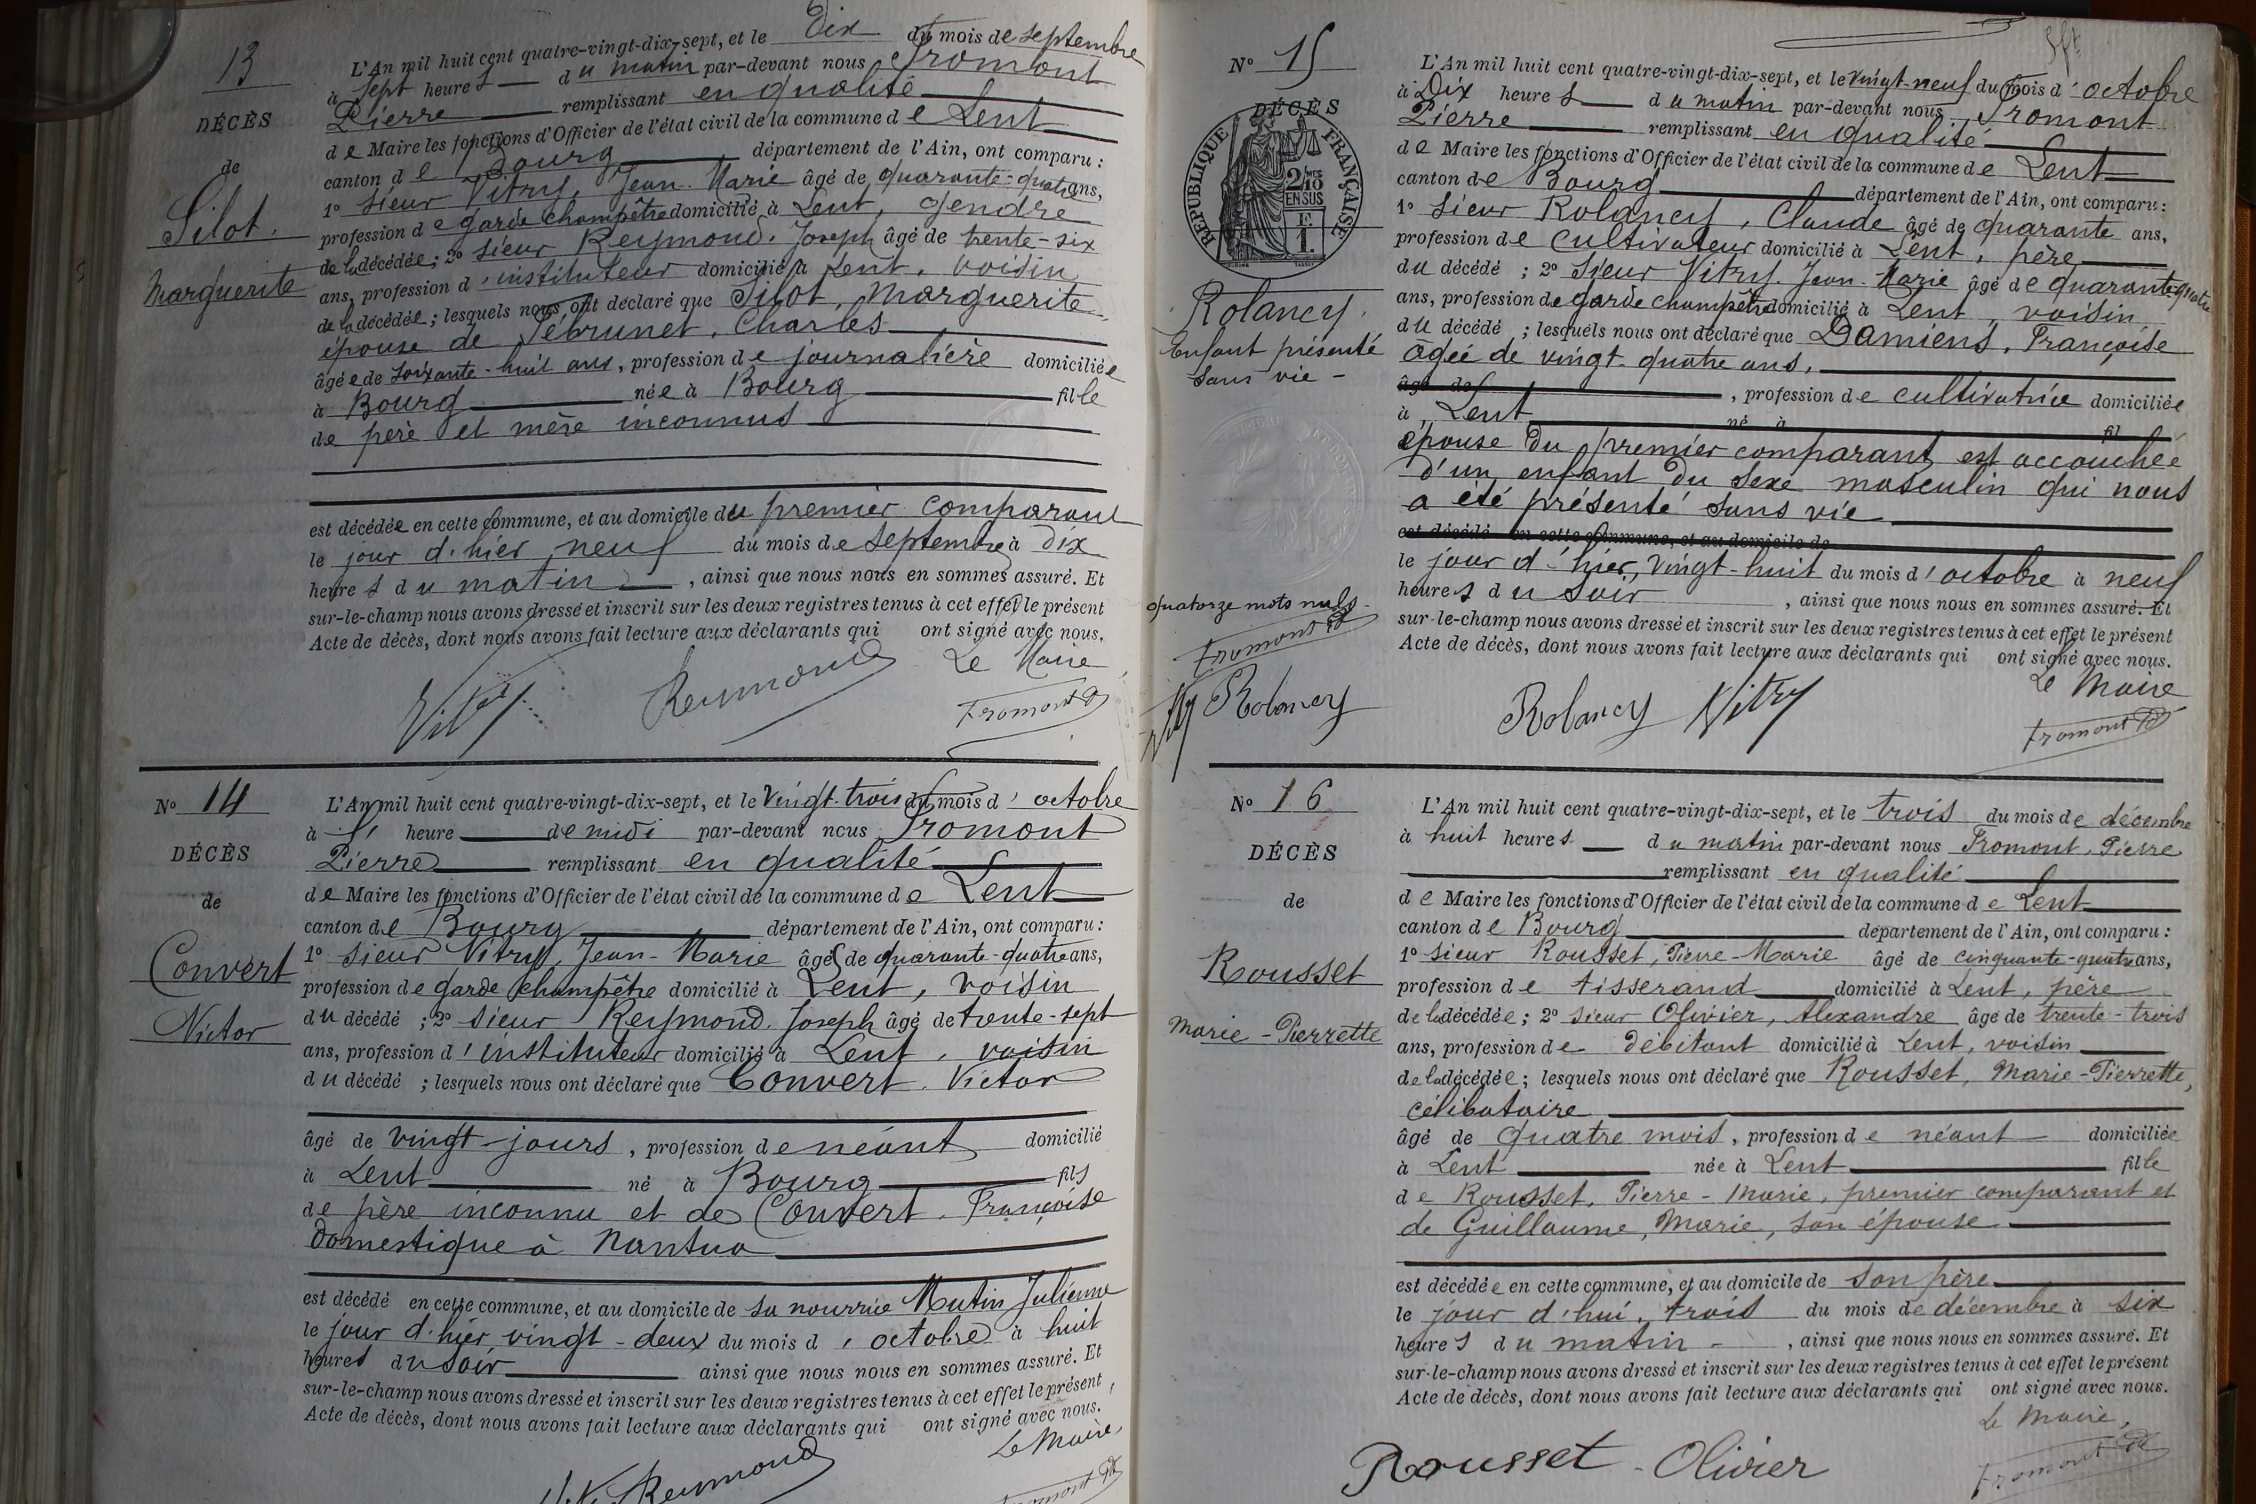 13
DÉCÈS
de
Silot.
Marguerite
L'An mil huit cent quatre-vingt-dix-sept, et le Dix du mois de septembre
à sept heures du matin par-devant nous Fromont
Pierre remplissant en qualité
de Maire les fonctions d'Officier de l'état civil de la commune de Lent
canton de Bourg département de l'Ain, ont comparu :
1° sieur Vitry, Jean-Marie âgé de quarante-quatre ans,
profession de garde champêtre domicilié à Lent, gendre
de la décédée ; 2° sieur Reymond, Joseph âgé de trente-six
ans, profession d'instituteur domicilié à Lent, voisin
de la décédée ; lesquels nous ont déclaré que Silot, Marguerite,
épouse de Tebrunet, Charles
âgée de soixante-huit ans, profession de journalière domiciliée
à Bourg née à Bourg fille
de père et mère inconnus
est décédée en cette commune, et au domicile du premier comparant
le jour d'hier neuf du mois de septembre à dix
heures du matin, ainsi que nous nous en sommes assuré. Et
sur-le-champ nous avons dressé et inscrit sur les deux registres tenus à cet effet le présent
Acte de décès, dont nous avons fait lecture aux déclarants qui ont signé avec nous.
Le Maire
Vitry Reymond Fromont
N° 14
DÉCÈS
de
Convert
Victor
L'An mil huit cent quatre-vingt-dix-sept, et le vingt-trois du mois d'octobre
à heure de midi par-devant nous Fromont
Pierre remplissant en qualité
de Maire les fonctions d'Officier de l'état civil de la commune de Lent
canton de Bourg département de l'Ain, ont comparu :
1° sieur Vitry, Jean-Marie âgé de quarante-quatre ans,
profession de garde champêtre domicilié à Lent, voisin
du décédé ; 2° sieur Reymond, Joseph âgé de trente-sept
ans, profession d'instituteur domicilié à Lent, voisin
du décédé ; lesquels nous ont déclaré que Convert, Victor
âgé de vingt-jours, profession de néant domicilié
à Lent né à Bourg fils
de père inconnu et de Convert, Françoise
domestique à Nantua
est décédé en cette commune, et au domicile de sa nourrice Mutin Julienne
le jour d'hier, vingt-deux du mois d'octobre à huit
heures du soir ainsi que nous nous en sommes assuré. Et
sur-le-champ nous avons dressé et inscrit sur les deux registres tenus à cet effet le présent
Acte de décès, dont nous avons fait lecture aux déclarants qui ont signé avec nous.
Le Maire,
Reymond Fromont
N° 15
DÉCÈS
RÉPUBLIQUE FRANÇAISE
2/10
EN SUS
1
Rolancy.
Enfant présenté
sans vie -
quatorze mots nuls.
Fromont
Rolancy
L'An mil huit cent quatre-vingt-dix-sept, et le vingt-neuf du mois d'octobre
à Dix heures du matin par-devant nous Fromont
Pierre remplissant en qualité
de Maire les fonctions d'Officier de l'état civil de la commune de Lent
canton de Bourg département de l'Ain, ont comparu :
1° sieur Rolancy, Claude âgé de quarante ans,
profession de cultivateur domicilié à Lent, père
du décédé ; 2° sieur Vitry, Jean-Marie âgé de quarante-quatre
ans, profession de garde champêtre domicilié à Lent, voisin
du décédé ; lesquels nous ont déclaré que Damiens, Françoise
âgée de vingt-quatre ans,
âgé de, profession de cultivatrice domiciliée
à Lent né à fil
épouse du premier comparant, est accouchée
d'un enfant du sexe masculin qui nous
a été présenté sans vie
est décédé en cette commune, et au domicile de
le jour d'hier, vingt-huit du mois d'octobre à neuf
heures du soir, ainsi que nous nous en sommes assuré. Et
sur-le-champ nous avons dressé et inscrit sur les deux registres tenus à cet effet le présent
Acte de décès, dont nous avons fait lecture aux déclarants qui ont signé avec nous.
Le Maire
Rolancy Vitry Fromont
N° 16
DÉCÈS
de
Rousset
Marie-Pierrette
L'An mil huit cent quatre-vingt-dix-sept, et le trois du mois de décembre
à huit heures du matin par-devant nous Fromont, Pierre
remplissant en qualité
de Maire les fonctions d'Officier de l'état civil de la commune de Lent
canton de Bourg département de l'Ain, ont comparu :
1° sieur Rousset, Pierre-Marie âgé de cinquante-quatre ans,
profession de tisserand domicilié à Lent, père
de la décédée ; 2° sieur Olivier, Alexandre âgé de trente-trois
ans, profession de débitant domicilié à Lent, voisin
de la décédée ; lesquels nous ont déclaré que Rousset, Marie-Pierrette,
célibataire
âgé de quatre mois, profession de néant domiciliée
à Lent née à Lent fille
de Rousset, Pierre-Marie, premier comparant et
de Guillaume, Marie, son épouse
est décédée en cette commune, et au domicile de son père
le jour d'hui, trois du mois de décembre à six
heures du matin, ainsi que nous nous en sommes assuré. Et
sur-le-champ nous avons dressé et inscrit sur les deux registres tenus à cet effet le présent
Acte de décès, dont nous avons fait lecture aux déclarants qui ont signé avec nous.
Le Maire,
Rousset Olivier Fromont